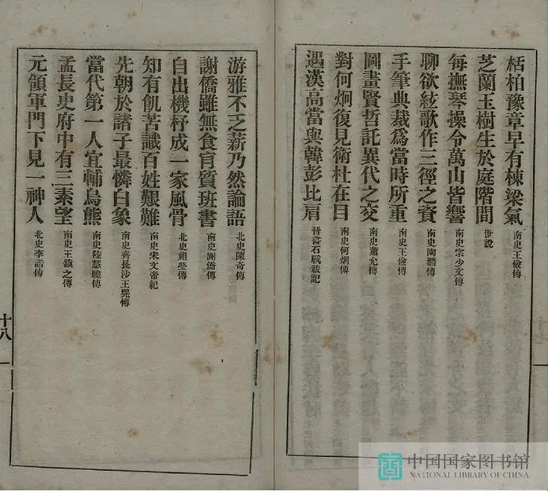 栝柏豫章早有棟梁氣 南史王儉傳
芝蘭玉樹生於庭階間 世說
每撫琴操令萬山皆響 南史宗少文傳
聊欲絃歌作三徑之資 南史陶潛傳
手筆典裁為當時所重 南史王儉傳
圖畫賢哲託異代之交 南史蕭允傳
對何炯復見衛杜在目 南史何炯傳
遇漢高當與韓彭比肩 晉書石勒載記
游雅不乏新乃然論語 北史陳奇傳
謝僑雖無食肯質班書 南史謝僑傳
自出機杼成一家風骨 北史祖瑩傳
知有飢苦識百姓艱難 南史宋文帝紀
先朝於諸子最憐白象 南史齊長沙王晃傳
當代第一人宜輔烏熊 南史陸慧曉傳
孟長史府中有三素望 南史王鎮之傳
元領軍門下見一神人 北史李諧傳
十八
中国国家图书馆
NATIONAL LIBRARY OF CHINA